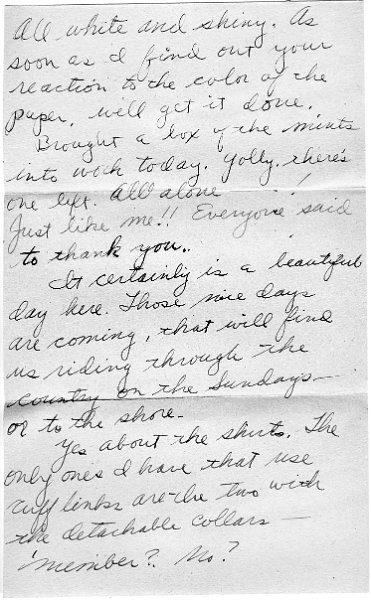 All white and shiny. As
soon as I find out your
reaction to the color of the
paper, will get it done.
Brought a box of the mints
into work today. Golly, there's
one left. All alone!
Just like me!! Everyone said
to thank you.
It certainly is a beautiful
day here. Those nice days
are coming, that will find
us riding through the
country on the Sundays—
or to the shore.
Yes about the shirts. The
only ones I have that use
cuff links are the two with
the detachable collars—
'member? No?